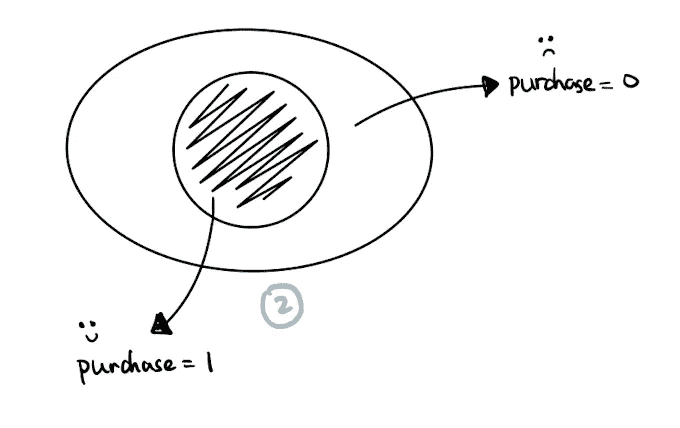 purchase = 0
2
purchase = 1